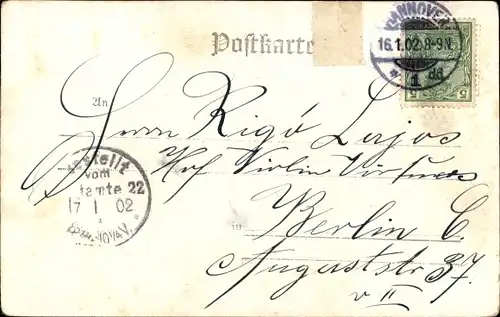 Postkarte
HANNOVER
16.1.02.8-9N.
1
5 5
An
Herrn Rigó Lajos
Hof Violin Virtuos
in Berlin C.
Auguststr 37.
v II
Bestellt
vom
Postamte 22
17 1 02